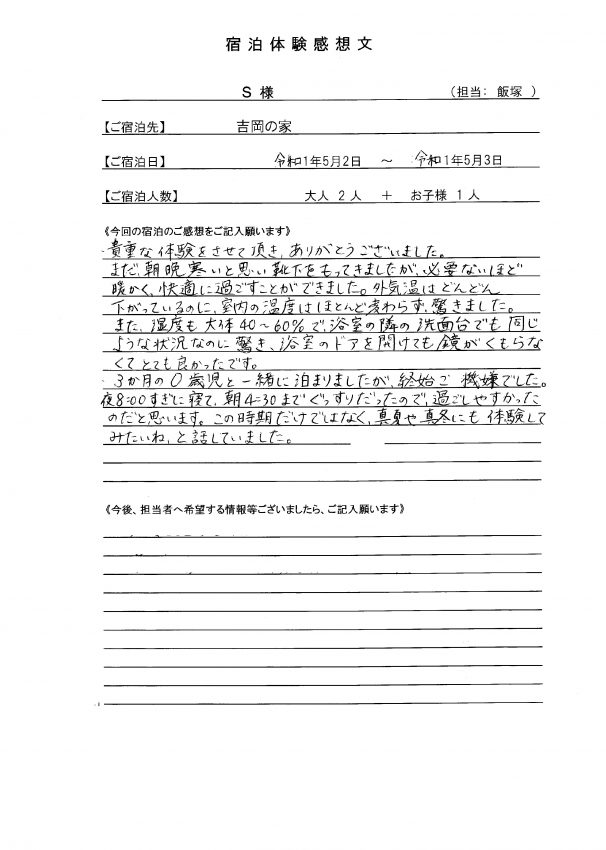 宿泊体験感想文
S 様 (担当: 飯塚 )
【ご宿泊先】 吉岡の家
【ご宿泊日】 令和1年5月2日 ～ 令和1年5月3日
【ご宿泊人数】 大人 2人 ＋ お子様 1人
《今回の宿泊のご感想をご記入願います》
貴重な体験をさせて頂き、ありがとうございました。
まだ、朝晩寒いと思い靴下をもってきましたが、必要ないほど
暖かく、快適に過ごすことができました。外気温はどんどん
下がっているのに、室内の温度はほとんど変わらず、驚きました。
また、湿度も大体40～60%で、浴室の隣の洗面台でも同じ
ような状況なのに驚き、浴室のドアを開けても鏡がくもらな
くてとても良かったです。
3か月の0歳児と一緒に泊まりましたが、終始ご機嫌でした。
夜8:00すぎに寝て、朝4:30までぐっすりだったので、過ごしやすかった
のだと思います。この時期だけではなく、真夏や真冬にも体験して
みたいね、と話していました。
《今後、担当者へ希望する情報等ございましたら、ご記入願います》